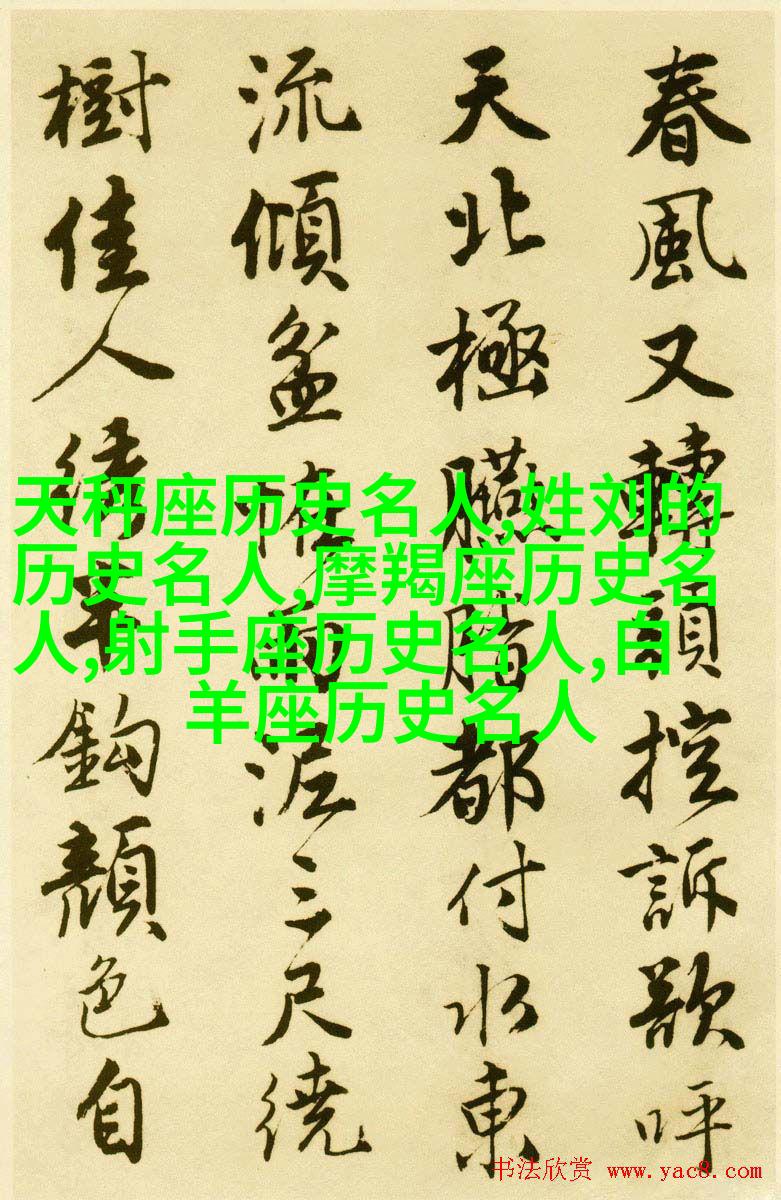 春風又轉頭控訴歌呼
天北極臙脂都付水東
流傾盆雨泥三尺繞
樹佳人鉤顏色自
天秤座历史名人,姓刘的
历史名人,摩羯座历史名
人,射手座历史名人,白
羊座历史名人
书法欣赏 www.yac8.com